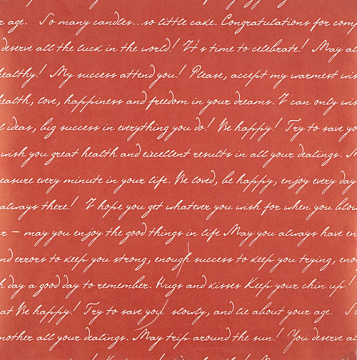 r age. So many candles...so little cake. Congratulations for comp
deserve all the luck in the world! It's time to celebrate! May al
healthy! My success attend you! Please, accept my warmest wis
ealth, love, happiness and freedom in your dreams. I can only wish
t ideas, big success in everything you do! Be happy! Try to save yo
wish you great health and excellent results in all your dealings. M
easure every minute in your life. Be loved, be happy, enjoy every day
always there! I hope you get whatever you wish for when you blow
r – may you enjoy the good things in life May you always have en
nd errors to keep you strong, enough success to keep you trying, enou
h day a good day to remember. Hugs and kisses Keep your chin up!
at Be happy! Try to save you slowly, and lie about your age. S
nother all your dealings. May trip around the sun! You deserve a